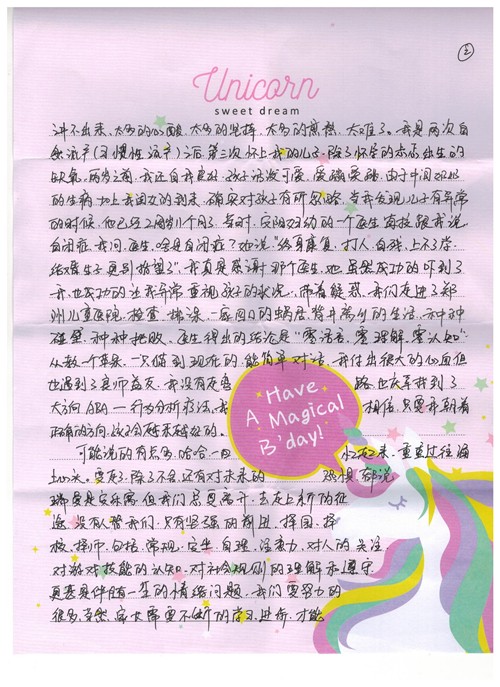 ②
Unicorn
sweet dream
讲不出来,太多的心酸,太多的坚持,太多的焦愁,太难了。我是两次自
然流产(习惯性流产)之后第三次怀上我的儿子,除了怀孕的忐忑出生的
缺氧,两岁之前,我还自我良好,孩子活泼可爱,
的生病,加上我闺女的到来,确实对孩子有所忽略,当我发现儿子有异常
的时候,他已经2周岁11个月了,当时,安阳妇幼的一个医生直接跟我说
自闭症,我问医生,啥是自闭症?她说"终身康复,打人,自残,上不了学,
结婚生子更别指望了",我真是感谢那个医生,她虽然成功的吓到了
我,也成功的让我异常重视孩子的状况,带着疑惑,我们走进了郑
州儿童医院,检查,排误,一居间的蜗居,暂开居的生活,种种
碰壁,种种把败,医生得出的结论是"零语言,零理解,零认知"
从教一个苹果,一只猫到现在的能简单对话,我付出很大的心血但
也遇到了良师益友,我没有走弯 路,也庆幸找到了
大方向ABA一行为分析疗法,我 相信,只要我朝着
正确的方向,孩子会越来越好的。
Have
A Magical
B'day!
可能说的有点多,哈哈一回 忆起来,重重过往涌
上心头。要死了除了不舍,还有对未来的 恐惧,都说
瑞曼是安乐窝,但我们总要离开,去走上新的征
途,没有人帮我们,只有坚强的前进,择园,择
校,择师,包括,常规,安坐,自理,忍耐力,对人的关注,
对游戏技能的认知,对社会规则的理解和遵守
真恶是伴有一定的情绪问题,我们要努力的
很多,当然,家长需要不断的学习,进步,才能